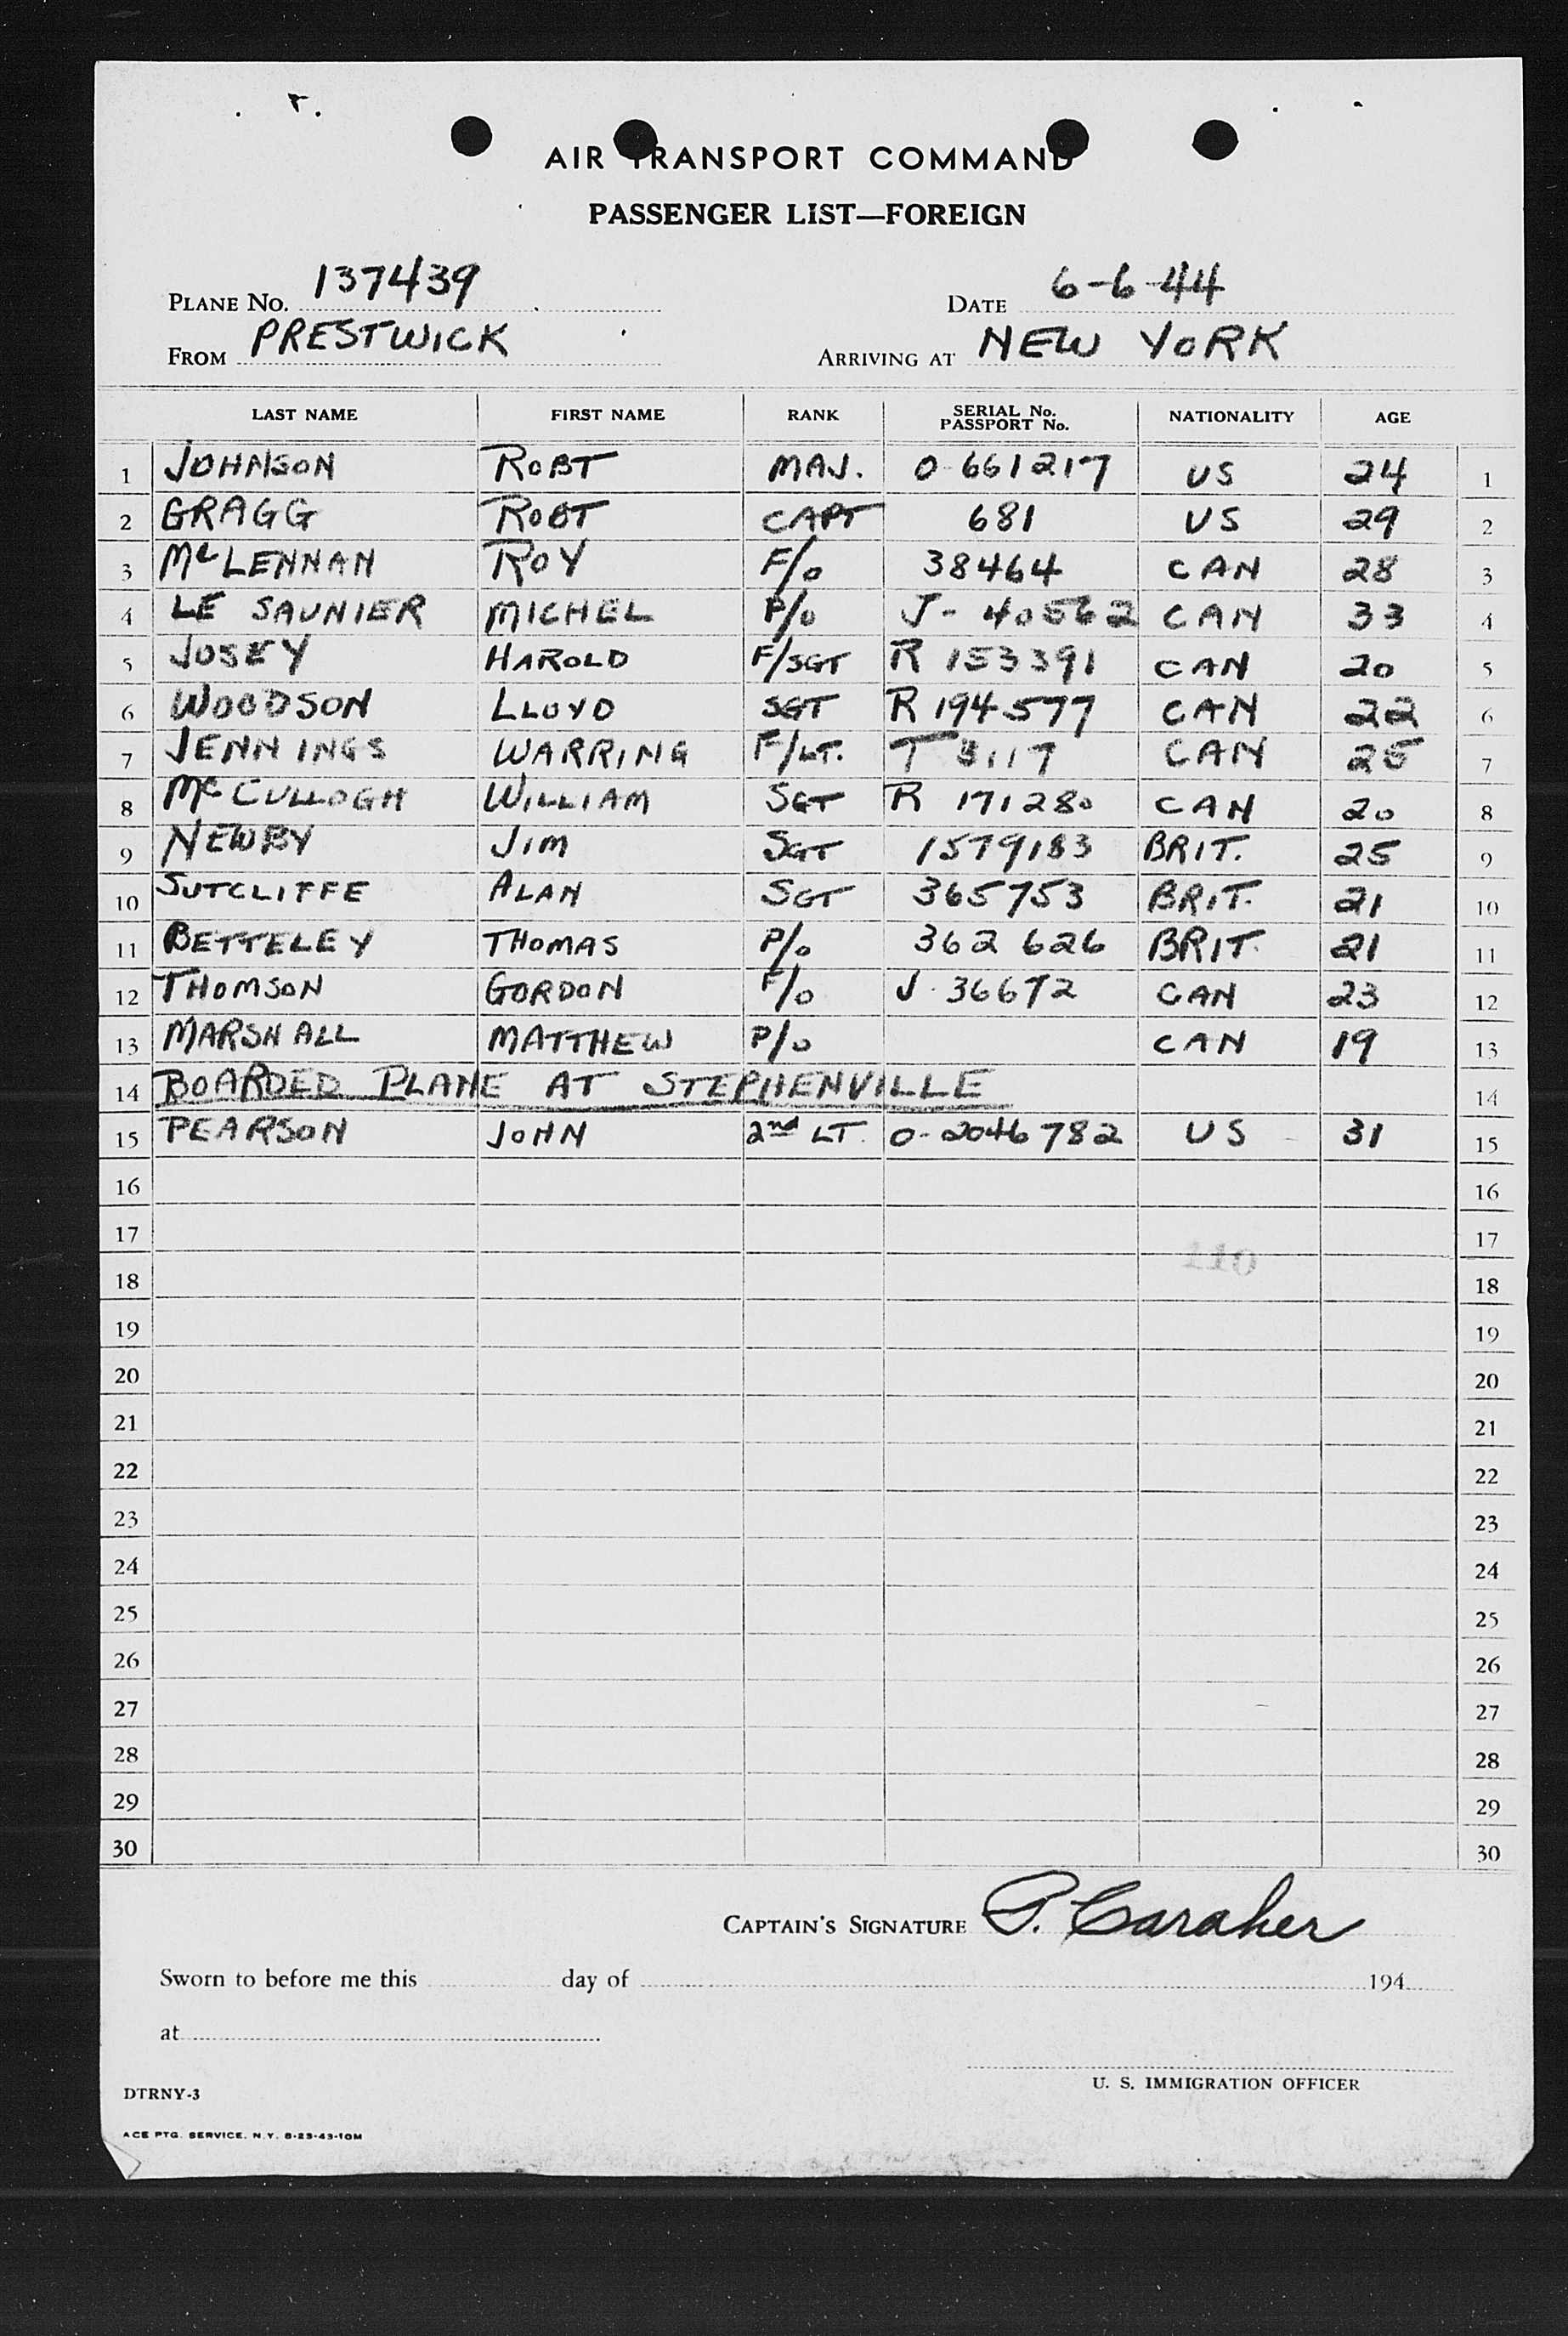 AIR TRANSPORT COMMAND
PASSENGER LIST—FOREIGN
PLANE No. 137439 DATE 6-6-44
FROM PRESTWICK ARRIVING AT NEW YORK
LAST NAME FIRST NAME RANK SERIAL No. PASSPORT No. NATIONALITY AGE
1 JOHNSON ROBT MAJ. O-661217 US 24 1
2 GRAGG ROBT CAPT 681 US 29 2
3 McLENNAN ROY F/O 38464 CAN 28 3
4 LE SAUNIER MICHEL P/O J-40562 CAN 33 4
5 JOSEY HAROLD F/SGT R 153391 CAN 20 5
6 WOODSON LLOYD SGT R 194577 CAN 22 6
7 JENNINGS WARRING F/LT. T 3117 CAN 25 7
8 McCULLOGH WILLIAM SGT R 171280 CAN 20 8
9 NEWBY JIM SGT 1579183 BRIT. 25 9
10 SUTCLIFFE ALAN SGT 365753 BRIT. 21 10
11 BETTELEY THOMAS P/O 362 626 BRIT. 21 11
12 THOMSON GORDON F/O J 36672 CAN 23 12
13 MARSHALL MATTHEW P/O CAN 19 13
14 BOARDED PLANE AT STEPHENVILLE 14
15 PEARSON JOHN 2nd LT. O-2046782 US 31 15
16 16
17 17
110
18 18
19 19
20 20
21 21
22 22
23 23
24 24
25 25
26 26
27 27
28 28
29 29
30 30
CAPTAIN'S SIGNATURE P. Caraher
Sworn to before me this day of 194
at
U. S. IMMIGRATION OFFICER
DTRNY-3
ACE PTG. SERVICE, N.Y. 8-23-43-10M